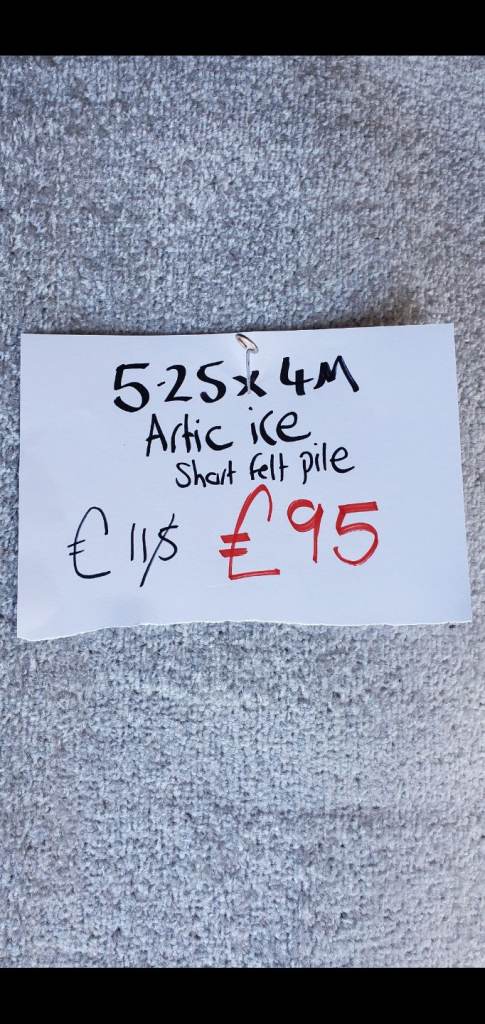 5.25 x 4M
Artic ice
Short felt pile
£115 £95